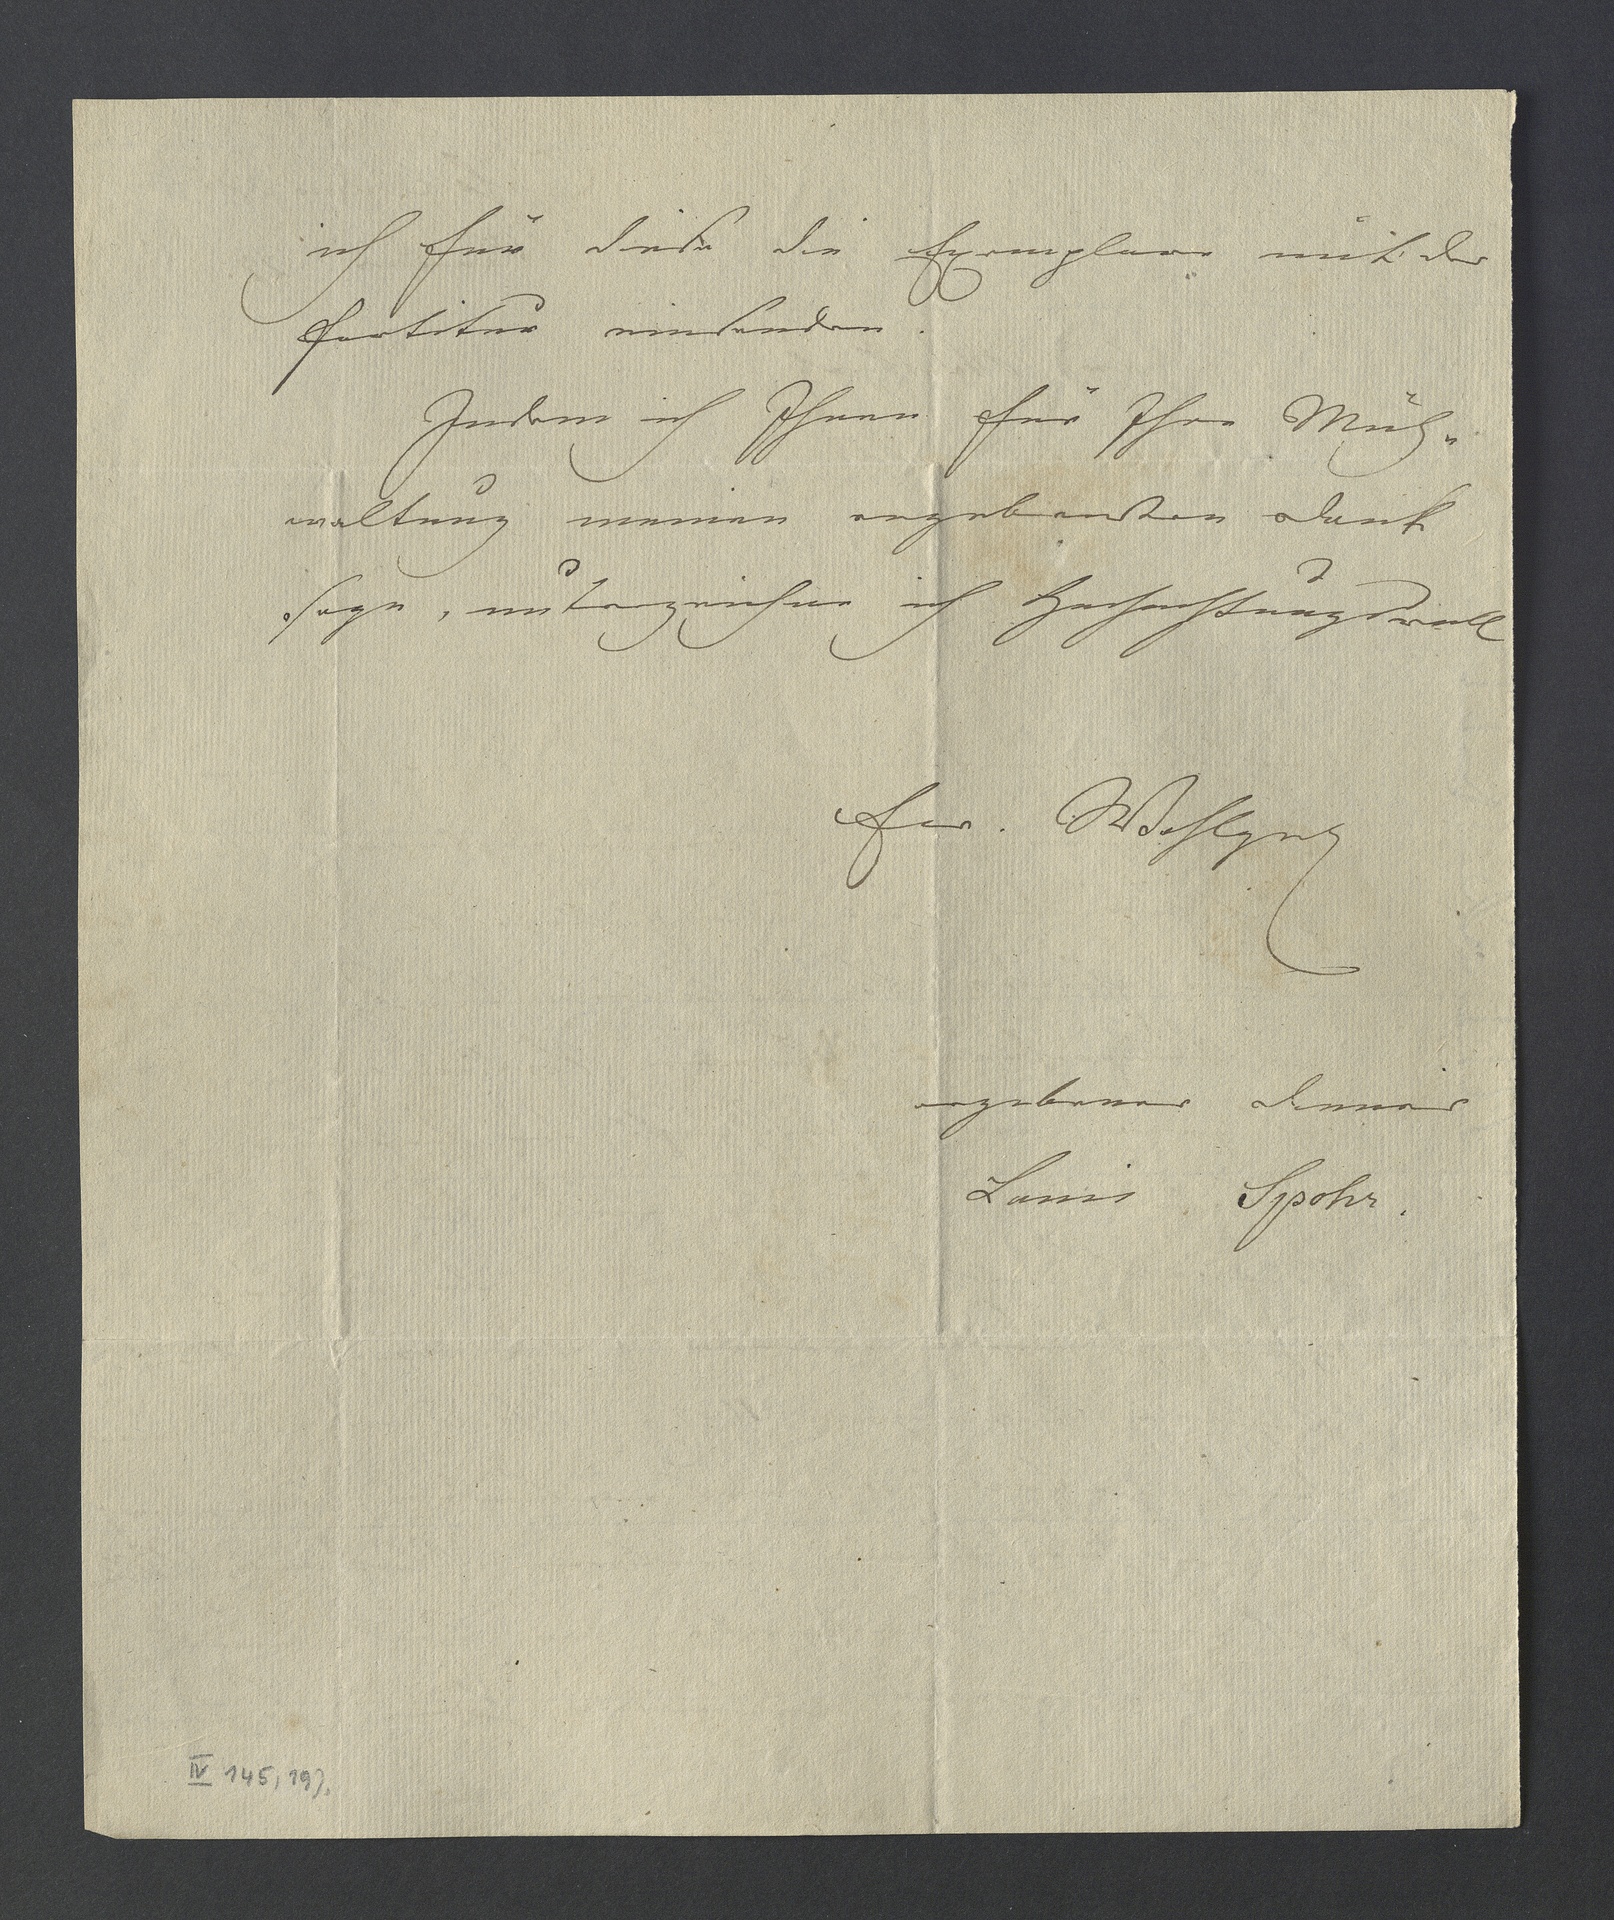 ich für diese die Exemplare mit der
Partitur einsenden.
Indem ich Ihnen für Ihre Müh-
waltung meinen ergebensten Dank
sage, unterzeichne ich hochachtungsvoll
Ew. Wohlgeb
ergebener Diener
Louis Spohr.
IV 145, 19).